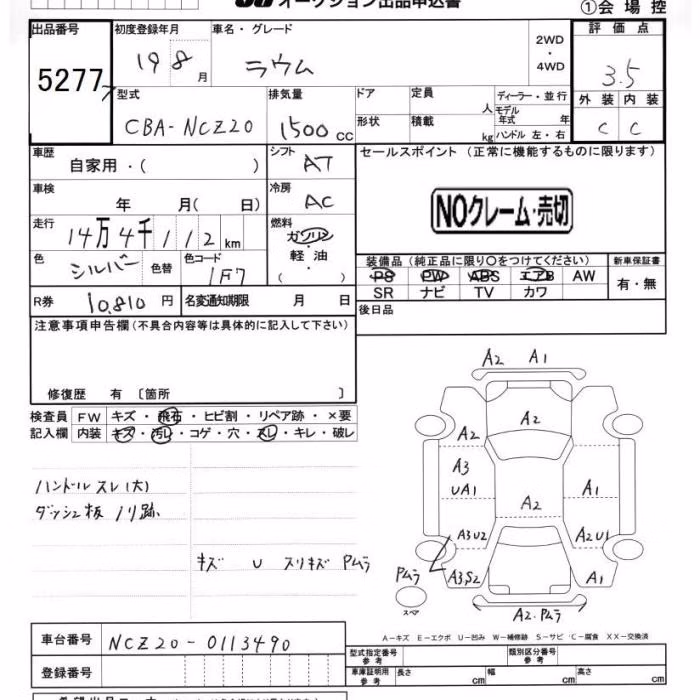 オークション出品申込書
①会場控
出品番号
5277
初度登録年月
19 8 月
車名・グレード
ラウム
2WD
・
4WD
評価点
3.5
外装 内装
C C
型式
CBA-NCZ20
排気量
1500 CC
ドア
定員
人
形状
積載
kg
ディーラー・並行
モデル年式 年
ハンドル 左・右
車歴
自家用・( )
シフト
AT
セールスポイント(正常に機能するものに限ります)
NOクレーム・売切
車検
年 月( 日)
冷房
AC
走行
14万4千112km
燃料
ガソリン
軽油
( )
色
シルバー
色替
色コード
1F7
装備品(純正品に限り〇をつけてください)
PS PW ABS エアB AW
SR ナビ TV カワ
新車保証書
有・無
R券
10,810 円
名変通知期限 月 日
後日品
注意事項申告欄(不具合内容等は具体的に記入して下さい)
修復歴 有〔箇所 〕
検査員記入欄
FW キズ・飛石・ヒビ割・リペア跡・×要
内装 キズ・汚レ・コゲ・穴・スレ・キレ・破レ
ハンドルスレ(大)
ダッシュ板 ノリ跡
キズ U スリキズ Pムラ
A2 A1
A2
A2
A3
UA1
A1
A2
A3U2
A2U1
Pムラ
A3,S2
A1
スペア
A2.Pムラ
A－キズ E－エクボ U－凹み W－補修跡 S－サビ C－腐食 XX－交換済
車台番号
NCZ20-0113490
登録番号
型式指定番号
参考
類別区分番号
参考
車庫証明用
参考
長さ cm
幅 cm
高さ cm